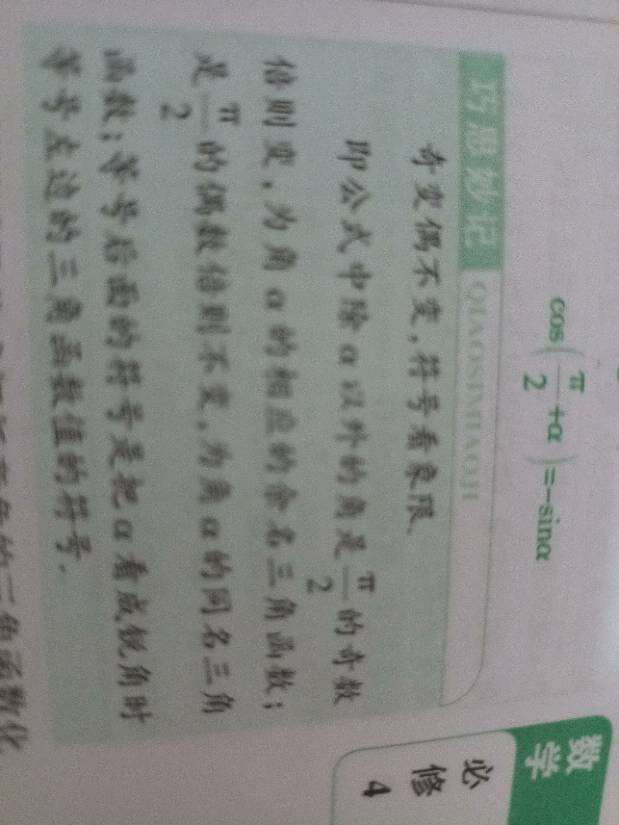 cos(π/2+α)=-sinα
巧思妙记 QIAOSIMIAOJI
奇变偶不变,符号看象限.
即公式中除α以外的角是π/2的奇数
倍则变,为角α的相应的余名三角函数;
是π/2的偶数倍则不变,为角α的同名三角
函数;等号后面的符号是把α看成锐角时
等号左边的三角函数值的符号.
角的三角函数化
数学
必修4